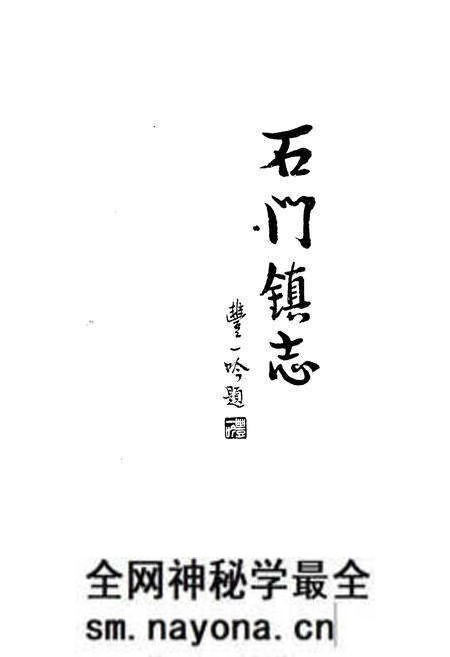 石门镇志
豐一吟题
全网神秘学最全
sm.nayona.cn